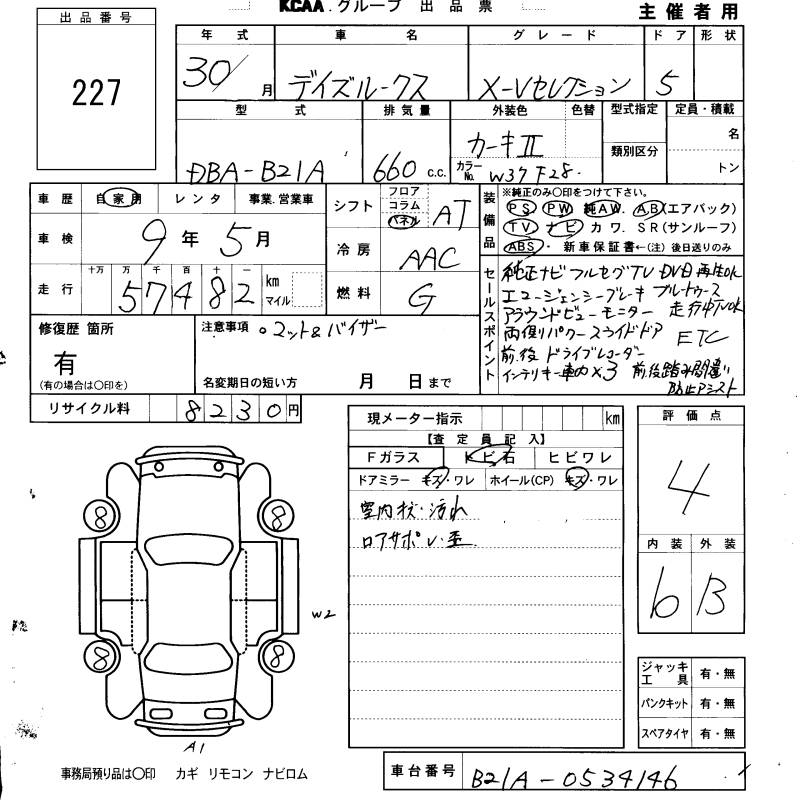 KCAA.グループ 出品票
主催者用
出品番号
227
年式 車名 グレード ドア 形状
30/ 月 デイズルークス X-Vセレクション 5
型式 排気量 外装色 色替 型式指定 定員・積載
DBA-B21A 660 c.c. カーキⅡ 類別区分 名
カラーNo. W37 F28. トン
車歴 自家用 レンタ 事業.営業車
車検 9年 5月
走行 十万 万 千 百 十 一 km マイル
57482
シフト フロア コラム パネル AT
冷房 AAC
燃料 G
装備品 ※純正のみ○印をつけて下さい。
PS PW 純AW. A,B(エアバッグ)
TV ナビ カワ. SR(サンルーフ)
ABS・ 新車保証書←(注)後日送りのみ
セールスポイント
純正ナビ フルセグTV DVD再生OK
エマージェンシーブレーキ ブルートゥース
アラウンドビューモニター 走行中TVOK
両側パワースライドドア ETC
前後ドライブレコーダー
インテリキー車内×3 前後踏み間違い
防止アシスト
修復歴 箇所
有
(有の場合は○印を)
注意事項 ○マット&バイザー
名変期日の短い方 月 日まで
リサイクル料 8230円
現メーター指示 km
【査定員記入】
Fガラス トビ石 ヒビワレ
ドアミラー キズ・ワレ ホイール(CP) キズ・ワレ
室内キズ・汚れ
ロアサポ レ・歪
評価点
4
内装 外装
b B
8 8
8 8
W2
A1
ジャッキ工具 有・無
パンクキット 有・無
スペアタイヤ 有・無
事務局預り品は○印 カギ リモコン ナビロム
車台番号 B21A-0534146